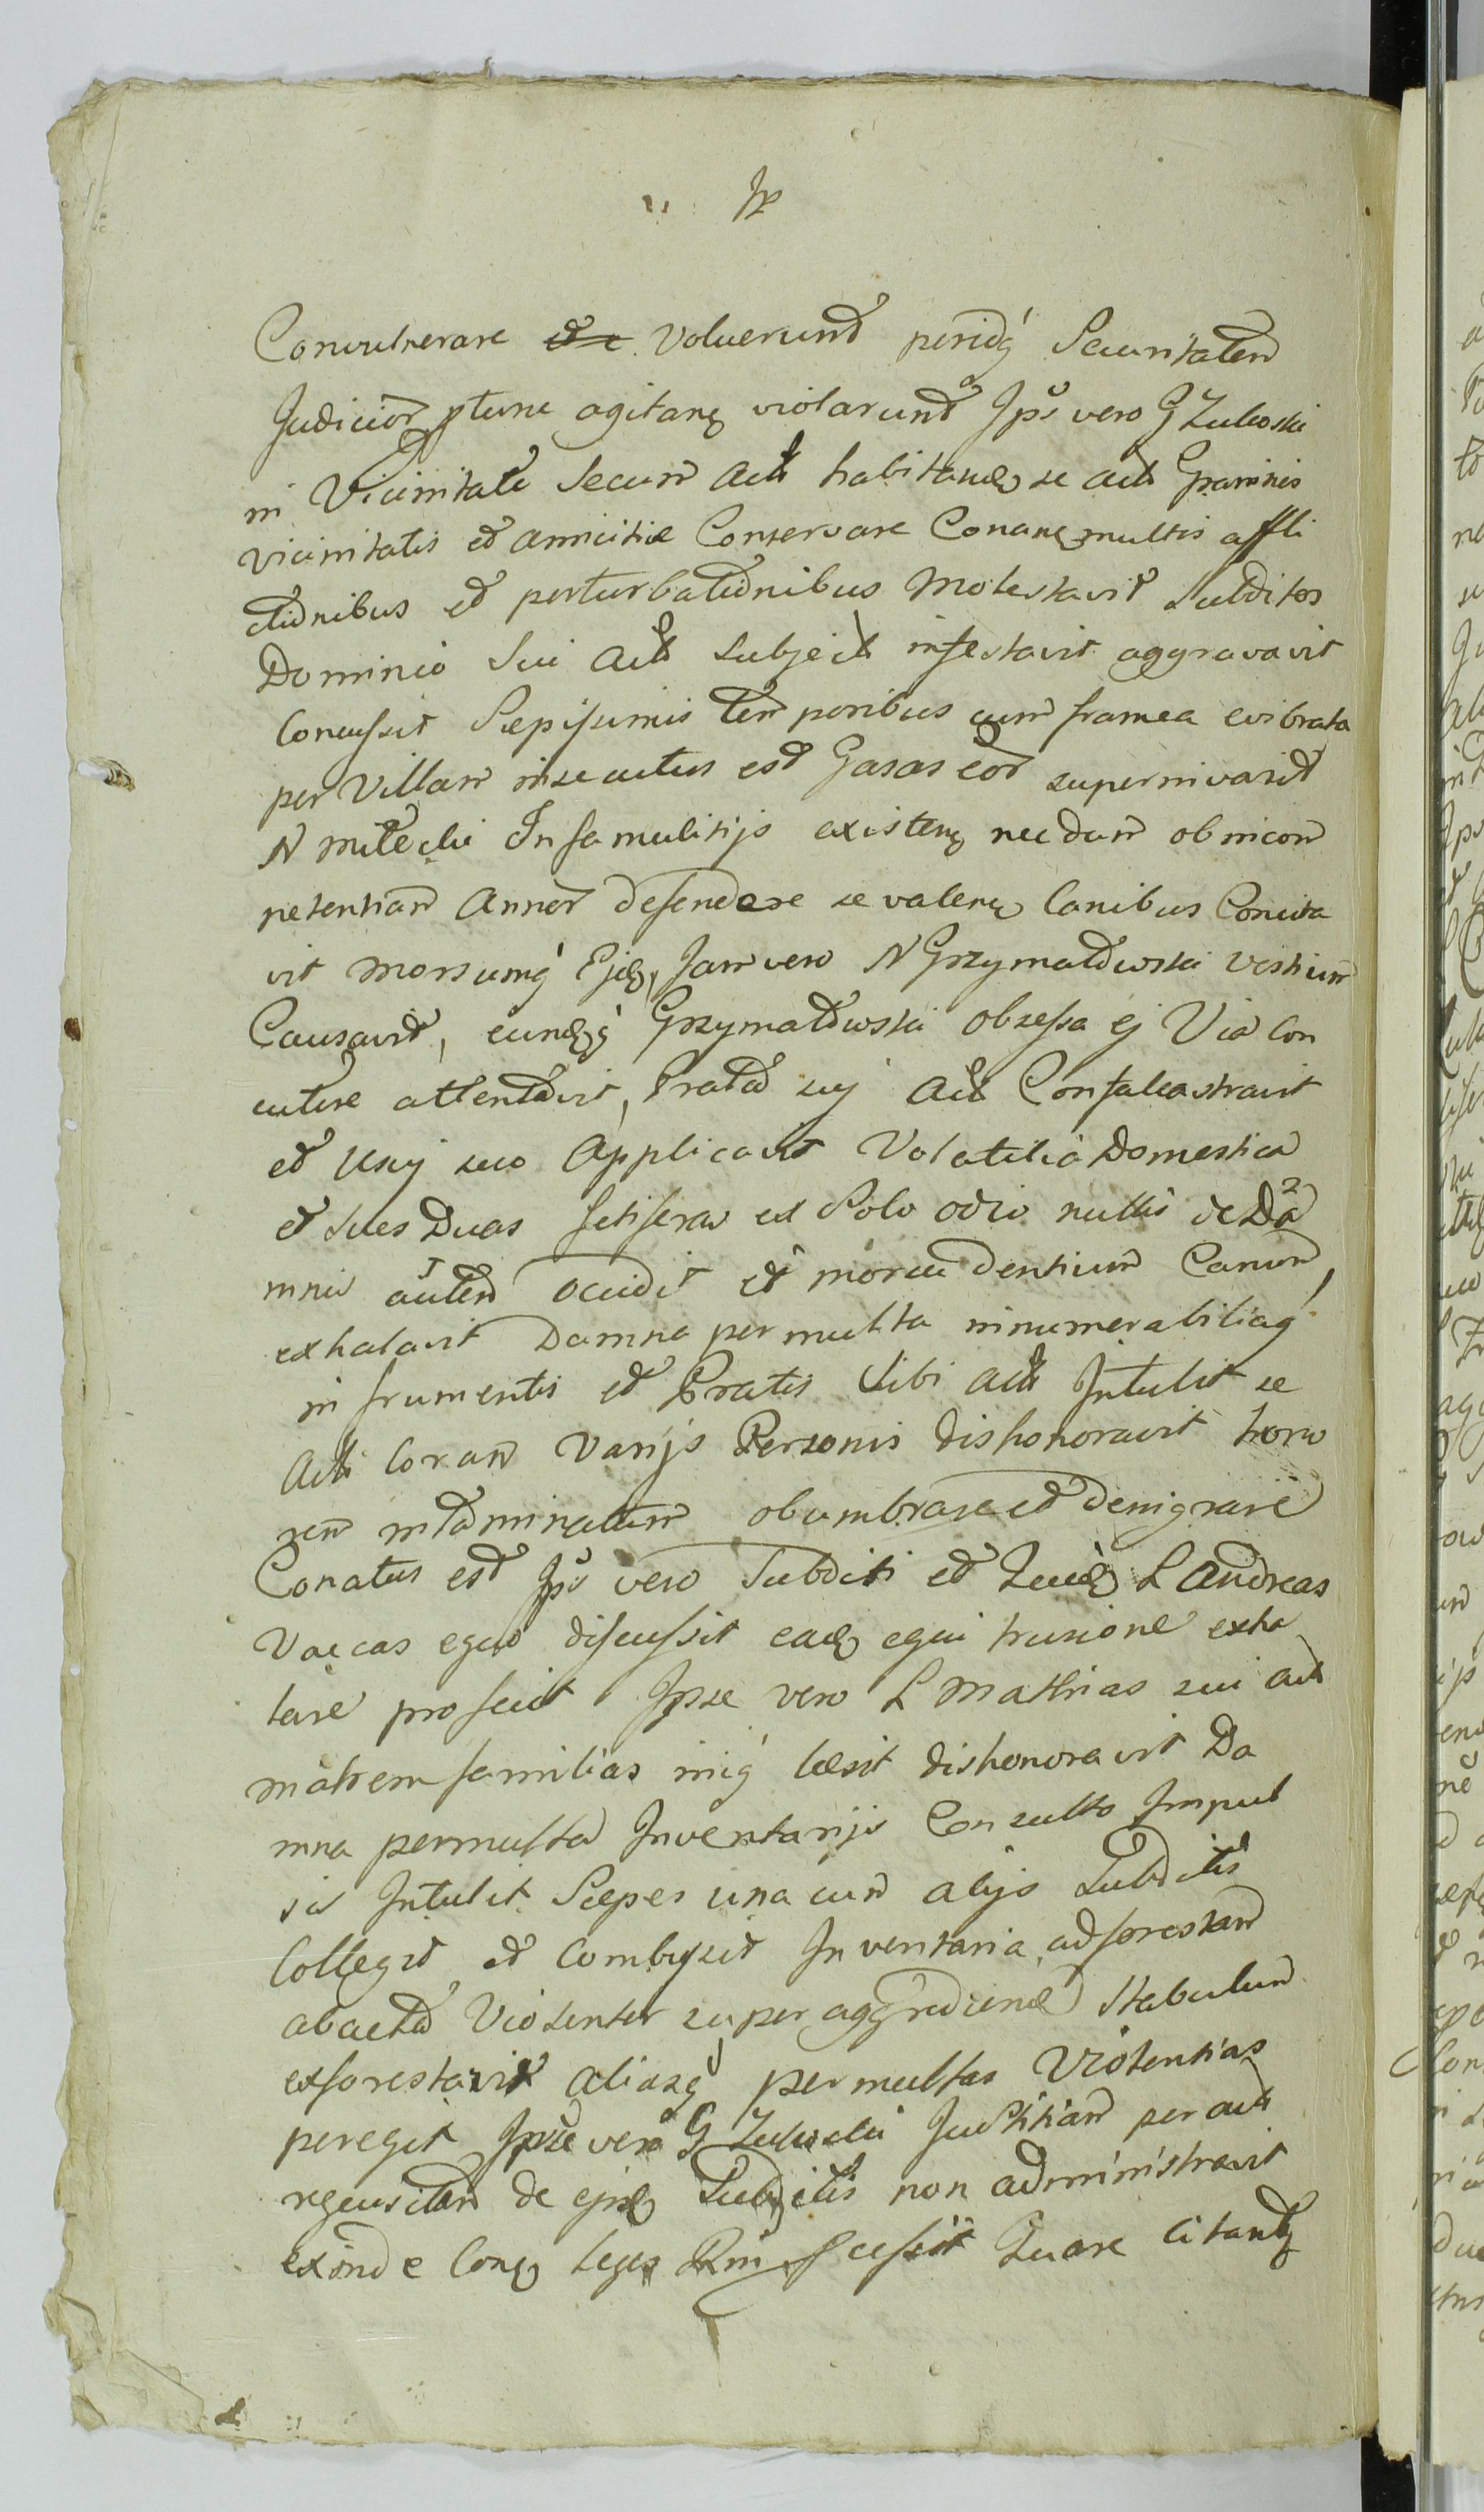 Convulnerare voluerunt peridq́ Securitatem
Judicior ptunc agitanę violarunt Ips vero G Zuboski
in Vicinitate Secum Act habitanę se act Graminis
vicinitatis et amicitiæ Conservare Conanę multis affli
ctionibus et perturbationibus Molestavit Subditos
Dominio Sui Act Subject infestavit aggravavit
Concussit Sæpissimis temporibus cum framea evibrata
per Villam insecutus est Gasas eor supernivasit
N Infamulitijs existenę necdum ob incom
petentiam Annor defendere se valenę Canibus Concita
vit morsumq́ Ejdę, Jam vero N Grzymałowski vestium
Causavit, eundęq́ Grzymałowski obsessa ej Via Con
cutere attentavit, Prata suj Act Confalcastravit
et Usuj suo Applicavit Volatilia Domestica
et Sues Duas Setiferas ex Solo odio nullis de Da
mnis autem occidit et morsu dentium Canum
exhalavit Damna permulta innumerabiliaq́
in frumentis et Pratis Sibi Act Intulit se
Act Coram Varijs Personis dishonoravit hono
rem intaminatum obumbrare et denigrare
Conatus est Ips vero Subditi et L Andreas
Vaccas equo discussit eadę equi trusione exha
lare profecit Ipse vero L Mathias sui act
matremfamilias iniq́ læsit dishonoravit Da
mna permulta Inventarijs Consulto Impul
sis Intulit Sæpes una cum alijs Subditis
Collegit et Combusit Inventaria ad forestam
abacta Violenter super aggrediend Stabulum
exforestavit aliasq́ permultas Violentias
peregit Ipse vero G Zuboski Justitiam per act
requsitam de ejusdę Subditis non administravit
exinde Conę leges Rni Quare Citantę